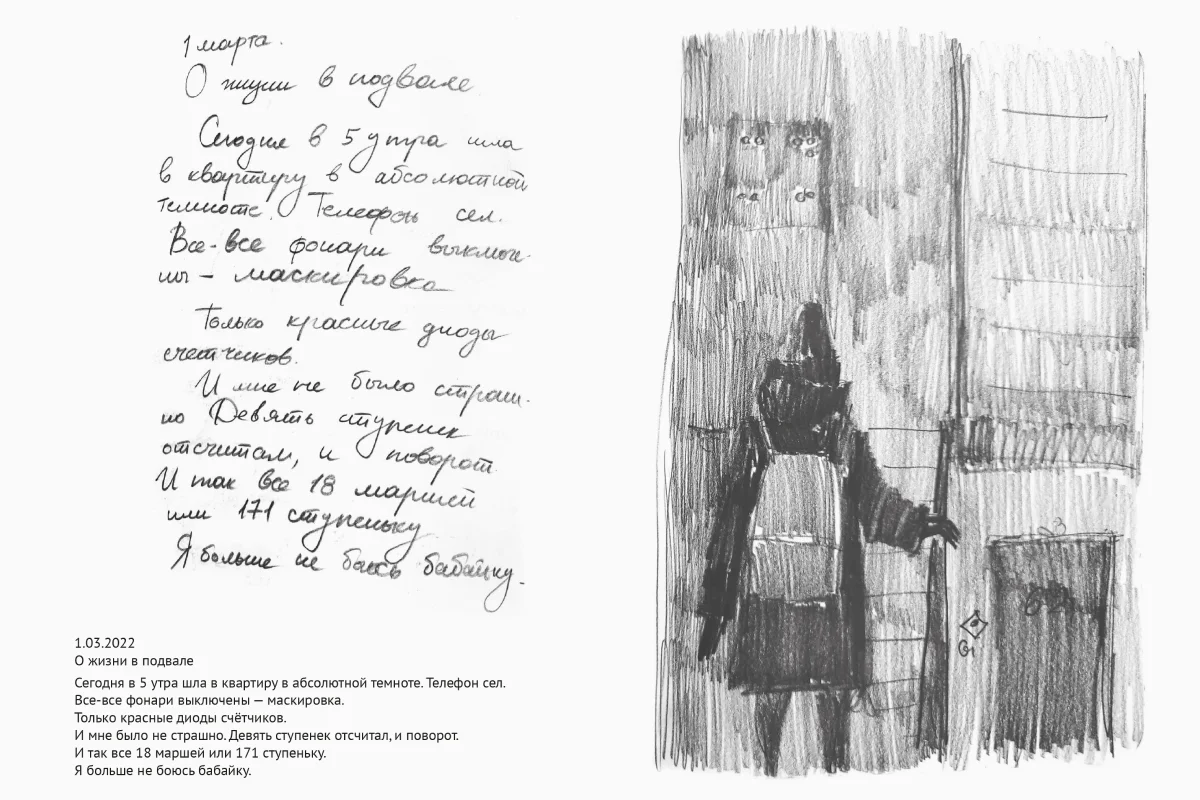 1 марта.
О жизни в подвале
Сегодня в 5 утра шла
в квартиру в абсолютной
темноте. Телефон сел.
Все-все фонари выключе-
ны – маскировка
Только красные диоды
счетчиков.
И мне не было страш-
но Девять ступенек
отсчитал, и поворот.
И так все 18 маршей
или 171 ступеньку
Я больше не боюсь бабайку.
1.03.2022
О жизни в подвале
Сегодня в 5 утра шла в квартиру в абсолютной темноте. Телефон сел.
Все-все фонари выключены — маскировка.
Только красные диоды счётчиков.
И мне не было страшно. Девять ступенек отсчитал, и поворот.
И так все 18 маршей или 171 ступеньку.
Я больше не боюсь бабайку.